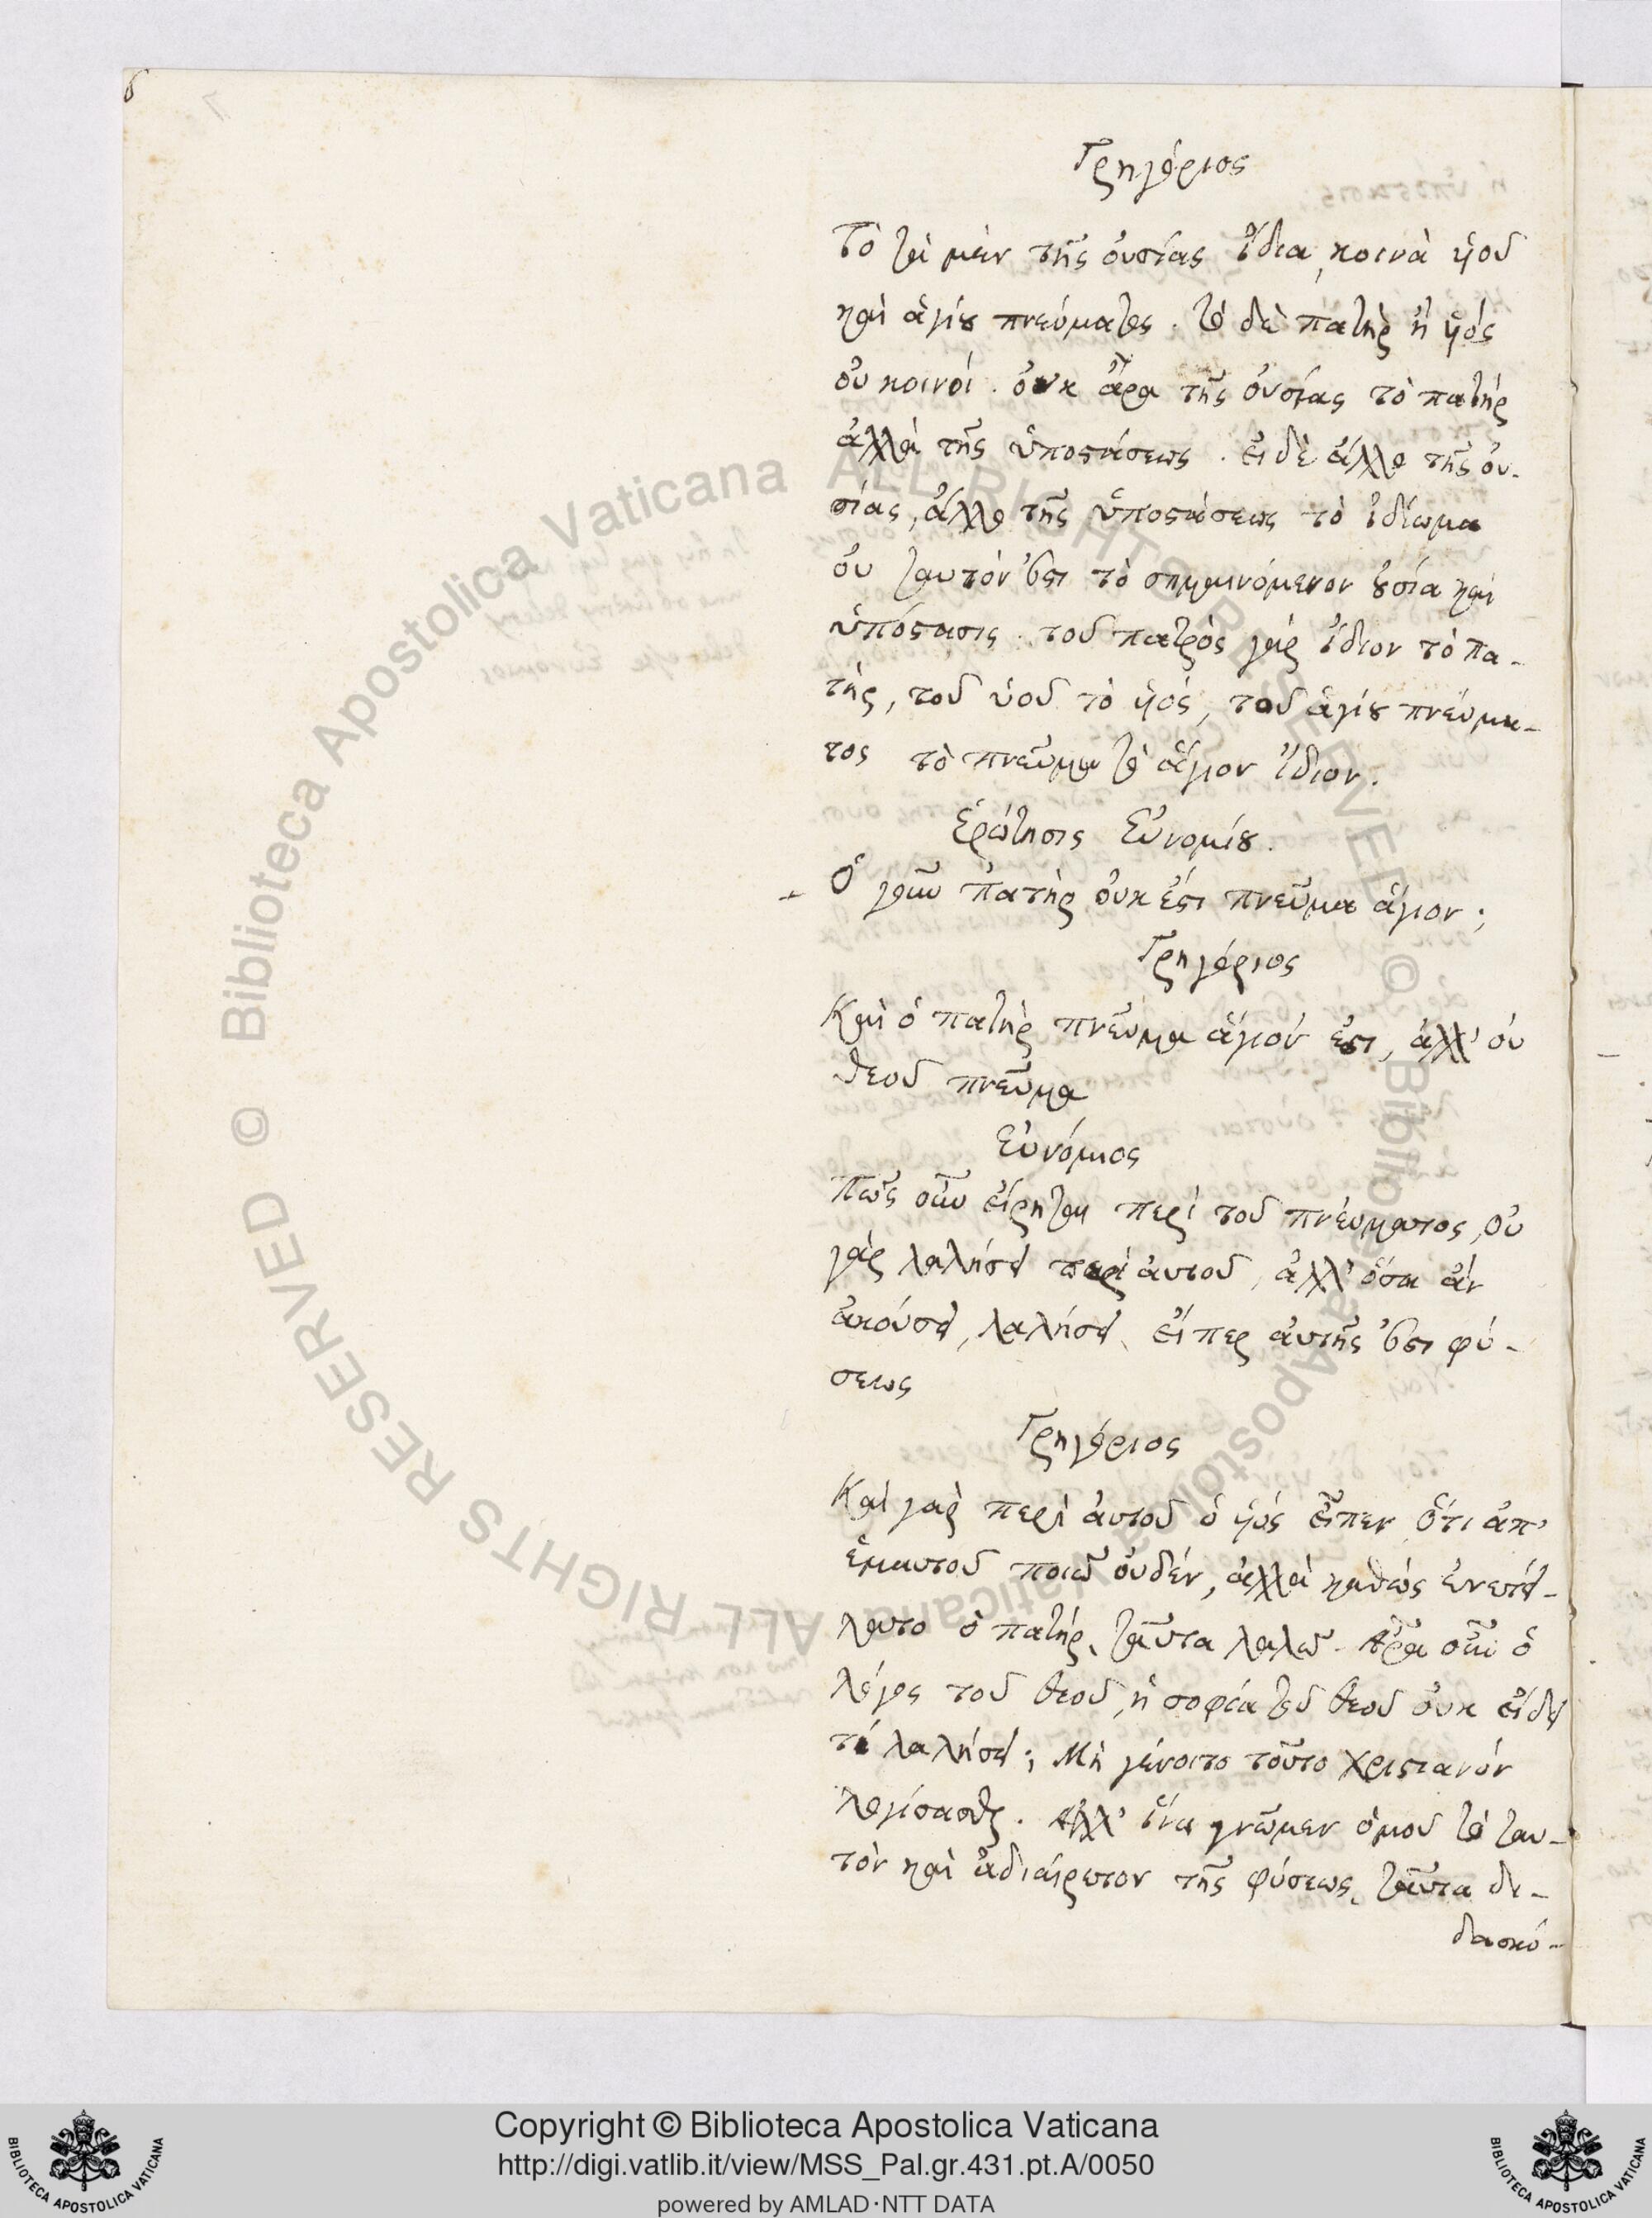 Γρηγόριος
Τὸ τὰ μὲν τῆς ὀυσίας ἴδια, κοινὰ ὑιοῦ
καὶ ἁγίου πνεύματος. τὸ δὲ πατὴρ ἢ ὑιός
ὀυ κοινόι. ὀυκ ἄρα τῆς ὀυσίας τὸ πατήρ
ἀλλὰ τῆς ὑποστάσεως. ἐι δὲ ἄλλο τῆς ὀυ-
σίας, ἄλλο τῆς ὑποστάσεως τὸ ἰδίωμα
ὀυ ταυτόν ἐστι τὸ σημαινόμενον ὀυσία καὶ
ὑπόστασις. τοῦ πατρὸς γὰρ ἴδιον τὸ πα-
τήρ, τοῦ ὑιοῦ τὸ ὑιός, τοῦ ἁγίου πνεύμα-
τος τὸ πνεῦμα τὸ ἅγιον ἴδιον.
Ἐρώτησις Ἐυνομίου.
Ὁ γοῦν πατὴρ ὀυκ ἔστι πνεῦμα ἅγιον;
Γρηγόριος
Καὶ ὁ πατὴρ πνεῦμα ἅγιόν ἐστι, ἀλλ' ὀυ
θεοῦ πνεῦμα
Ἐυνόμιος
Πῶς οὖν ἐίρηται περὶ τοῦ πνέυματος, ὀυ
γὰρ λαλήσει περὶ ἀυτοῦ, ἀλλ' ὅσα ἂν
ἀκούσει, λαλήσει, ἐίπερ ἀυτῆς ἐστι φύ-
σεως
Γρηγόριος
Καὶ γὰρ περὶ ἀυτοῦ ὁ ὑιός ἐῖπεν ὅτι ἀπ'
ἐμαυτοῦ ποιῶ ὀυδέν, ἀλλὰ καθὼς ἐνετεί-
λατο ὁ πατήρ, ταῦτα λαλῶ. Ἆρα οὖν ὁ
λόγος τοῦ θεοῦ, ἡ σοφία τοῦ θεοῦ ὀυκ ἐίδει
τί λαλήσει; Μὴ γένοιτο τοῦτο χριστιανόν
λογίσασθαι. Ἀλλ' ἵνα γνῶμεν ὁμοῦ τὸ ταυ-
τὸν καὶ ἀδιαίρετον τῆς φύσεως, ταῦτα δι-
δασκό-
Copyright © Biblioteca Apostolica Vaticana
http://digi.vatlib.it/view/MSS_Pal.gr.431.pt.A/0050
powered by AMLAD·NTT DATA
BIBLIOTECA APOSTOLICA VATICANA
BIBLIOTECA APOSTOLICA VATICANA
© Biblioteca Apostolica Vaticana ALL RIGHTS RESERVED
© Biblioteca Apostolica Vaticana ALL RIGHTS RESERVED